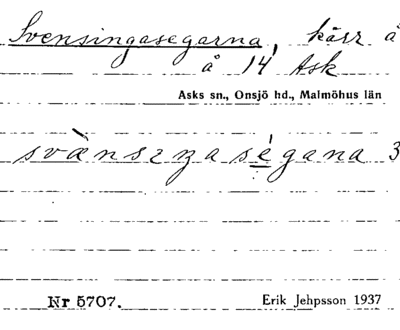 Svensingasegarna, kärr å
å 14 Ask
Asks sn., Onsjö hd., Malmöhus län
svæ̀nsɪŋa ségana 3
Nr 5707.
Erik Jehpsson 1937